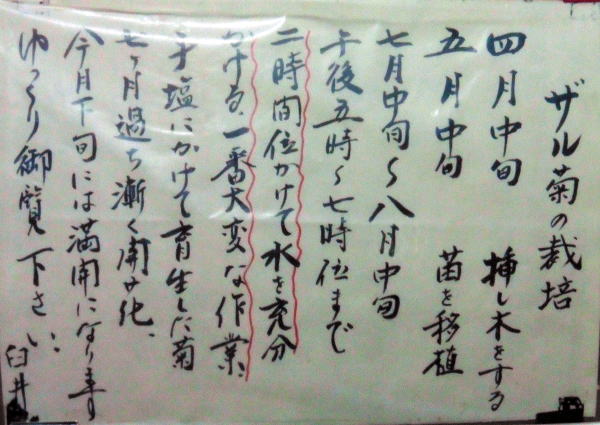 ザル菊の栽培
四月中旬 挿し木をする
五月中旬 苗を移植
七月中旬〜八月中旬
午後五時〜七時位まで
二時間位かけて水を充分
かける、一番大変な作業、
手塩にかけて育生した菊
七ヶ月過ち漸く開サ化、
今月下旬には満開になります
ゆっくり御覧下さい。
臼井